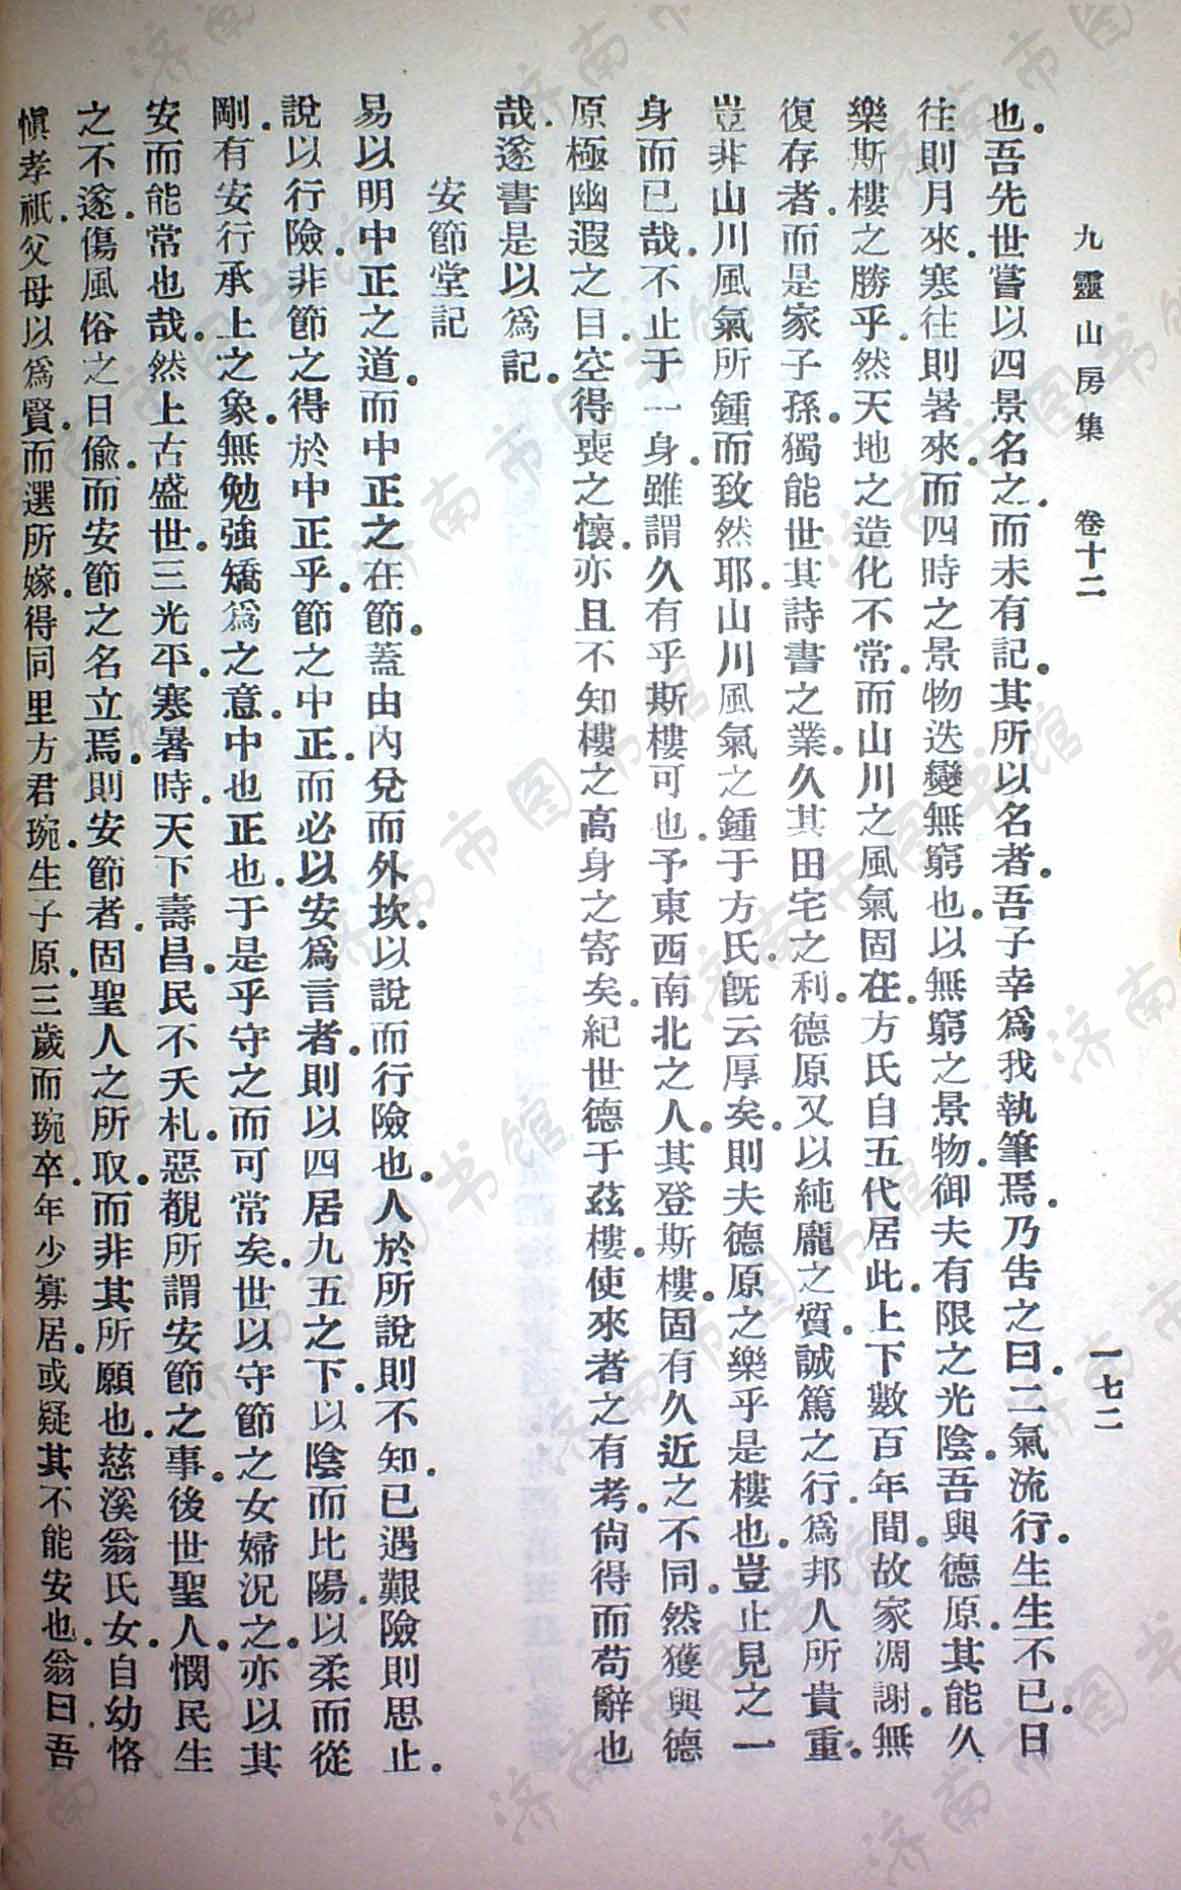 九靈山房集　卷十二　一七二
也。吾先世嘗以四景名之。而未有記。其所以名者。吾子幸爲我執筆焉。乃告之曰。二氣流行。生生不已。日
往則月來。寒往則暑來。而四時之景物迭變無窮也。以無窮之景物。御夫有限之光陰。吾與德原。其能久
樂斯樓之勝乎。然天地之造化不常。而山川之風氣固在。方氏自五代居此。上下數百年間。故家凋謝。無
復存者。而是家子孫。獨能世其詩書之業。久其田宅之利。德原又以純龐之質。誠篤之行。爲邦人所貴重。
豈非山川風氣所鍾而致然耶。山川風氣之鍾于方氏。旣云厚矣。則夫德原之樂乎是樓也。豈止見之一
身而已哉。不止于一身。雖謂久有乎斯樓可也。予東西南北之人。其登斯樓。固有久近之不同。然獲與德
原極幽遐之目。空得喪之懷。亦且不知樓之高身之寄矣。紀世德于茲樓。使來者之有考。尙得而苟辭也
哉。遂書是以爲記。
安節堂記
易以明中正之道。而中正之在節。蓋由內兌而外坎。以說而行險也。人於所說則不知已。遇艱險則思止。
說以行險。非節之得於中正乎。節之中正。而必以安爲言者。則以四居九五之下。以陰而比陽。以柔而從
剛。有安行承上之象。無勉強矯爲之意。中也正也。于是乎守之而可常矣。世以守節之女婦況之。亦以其
安而能常也哉。然上古盛世。三光平。寒暑時。天下壽昌。民不夭札。惡覩所謂安節之事。後世聖人。憫民生
之不遂。傷風俗之日偷。而安節之名立焉。則安節者。固聖人之所取。而非其所願也。慈溪翁氏女。自幼恪
愼孝祇。父母以爲賢。而選所嫁。得同里方君琬。生子原。三歲而琬卒。年少寡居。或疑其不能安也。翁曰吾